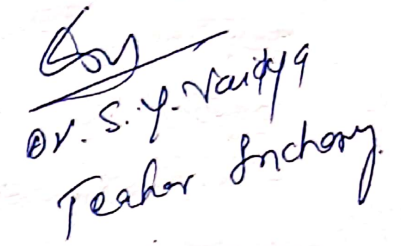 Dr. S. Y. Vaidya
Teaher Incharg.